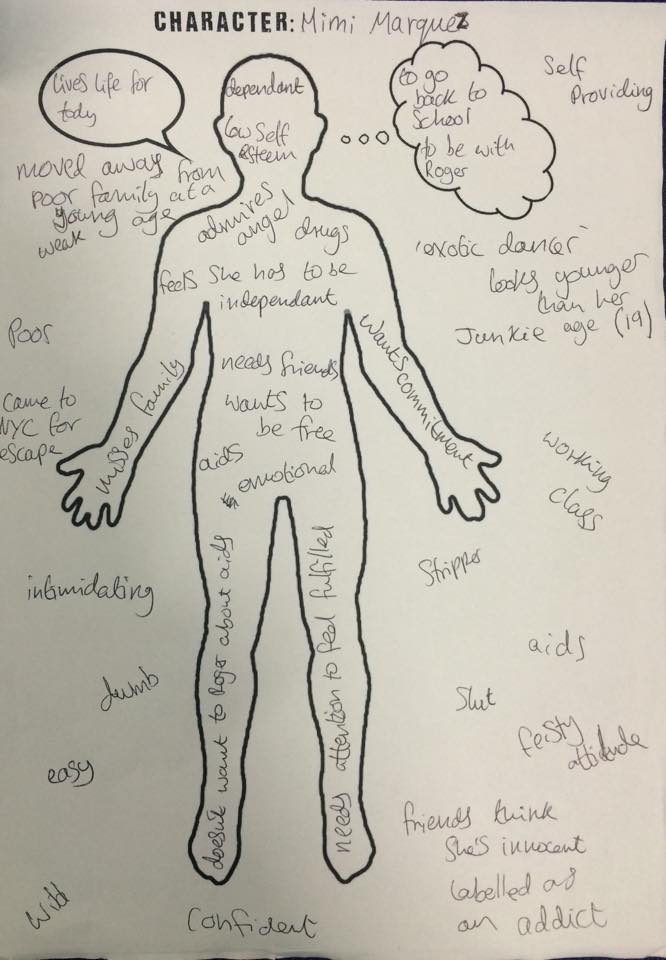 CHARACTER: Mimi Marquez
lives life for
tody
dependant
low self
esteem
to go
back to
School
to be with
Roger
Self
Providing
moved away from
poor family at a
young age
weak
admires
angel
drugs
feels She has to be
independant
'exotic dancer'
looks younger
than her
age (19)
Junkie
Poor
Came to
NYC for
escape
misses family
needs friends
wants to
be free
aids
emotional
wants commitment
working
class
intimidating
dumb
easy
Wild
doesnt want to Roger about aids
needs attention to feel fulfilled
Stripper
aids
Slut
feisty
attitude
friends think
She's innocent
labelled as
an addict
Confident